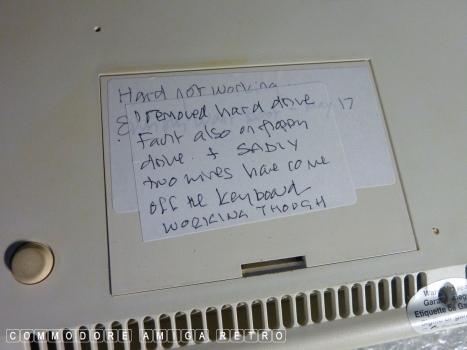 Hard not working
&
17
I removed hard drive
Fault also on floppy
drive. & SADLY
two wires have come
off the keyboard
WORKING THOUGH
War
Gara
Etiquette de Ga
COMMODORE AMIGA RETRO